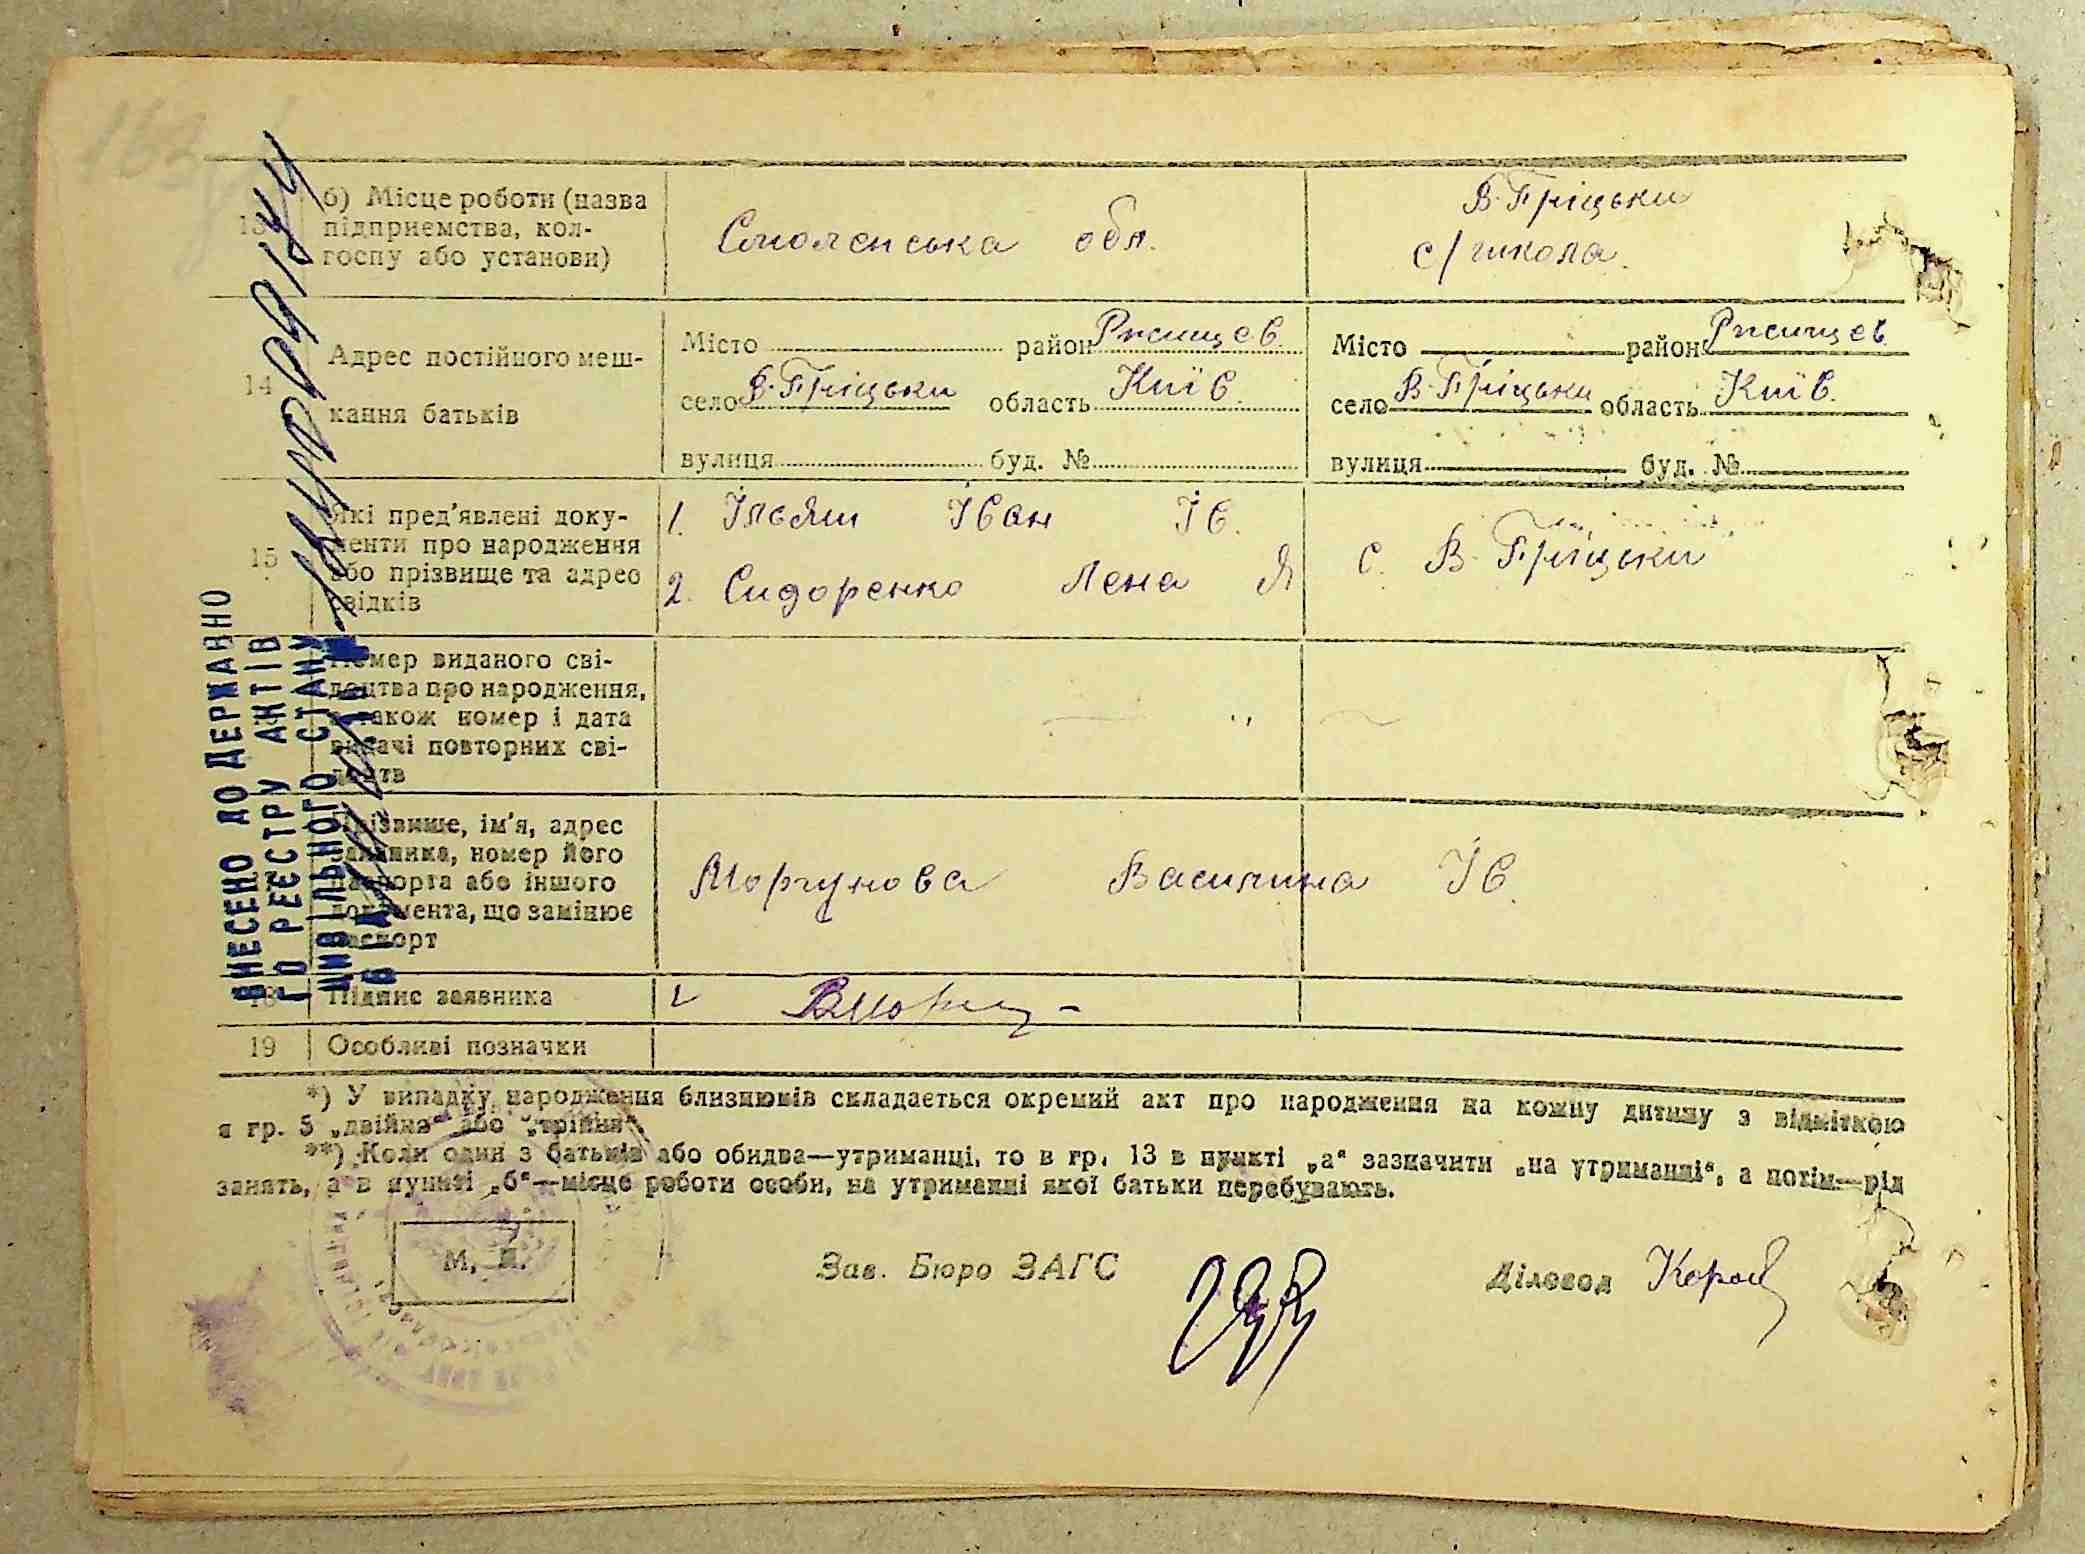 163
13 б) Місце роботи (назва підприємства, колгоспу або установи) Смоленська обл. В. Гріцьки с/школа.
14 Адрес постійного мешкання батьків
Місто район Ржищев. Місто район Ржищев
село В. Гріцьки область Київ. село В. Гріцьки область Київ.
вулиця буд. № вулиця буд. №
15 Які пред'явлені документи про народження або прізвище та адрес свідків
1. Ільяш Іван Ів.
2. Сидоренко Лена Я
с. В. Гріцьки
Номер виданого свідоцтва про народження, а також номер і дата видачі повторних свідоцтв
— " —
Прізвище, ім'я, адрес заявника, номер його паспорта або іншого документа, що замінює паспорт
Моргунова Василина Ів.
18 Підпис заявника
19 Особливі позначки
*) У випадку народження близнюків складається окремий акт про народження на кожну дитину з відміткою
в гр. 5 „двійня" або „трійня".
**) Коли один з батьків або обидва—утриманці, то в гр. 13 в пункті „а" зазначити „на утриманні", а потім—рід
занять, а в пункті „б"—місце роботи особи, на утриманні якої батьки перебувають.
М. П.
Зав. Бюро ЗАГС
Діловод
ВНЕСЕНО ДО ДЕРЖАВНО
ГО РЕЄСТРУ АКТІВ
ЦИВІЛЬНОГО СТАНУ